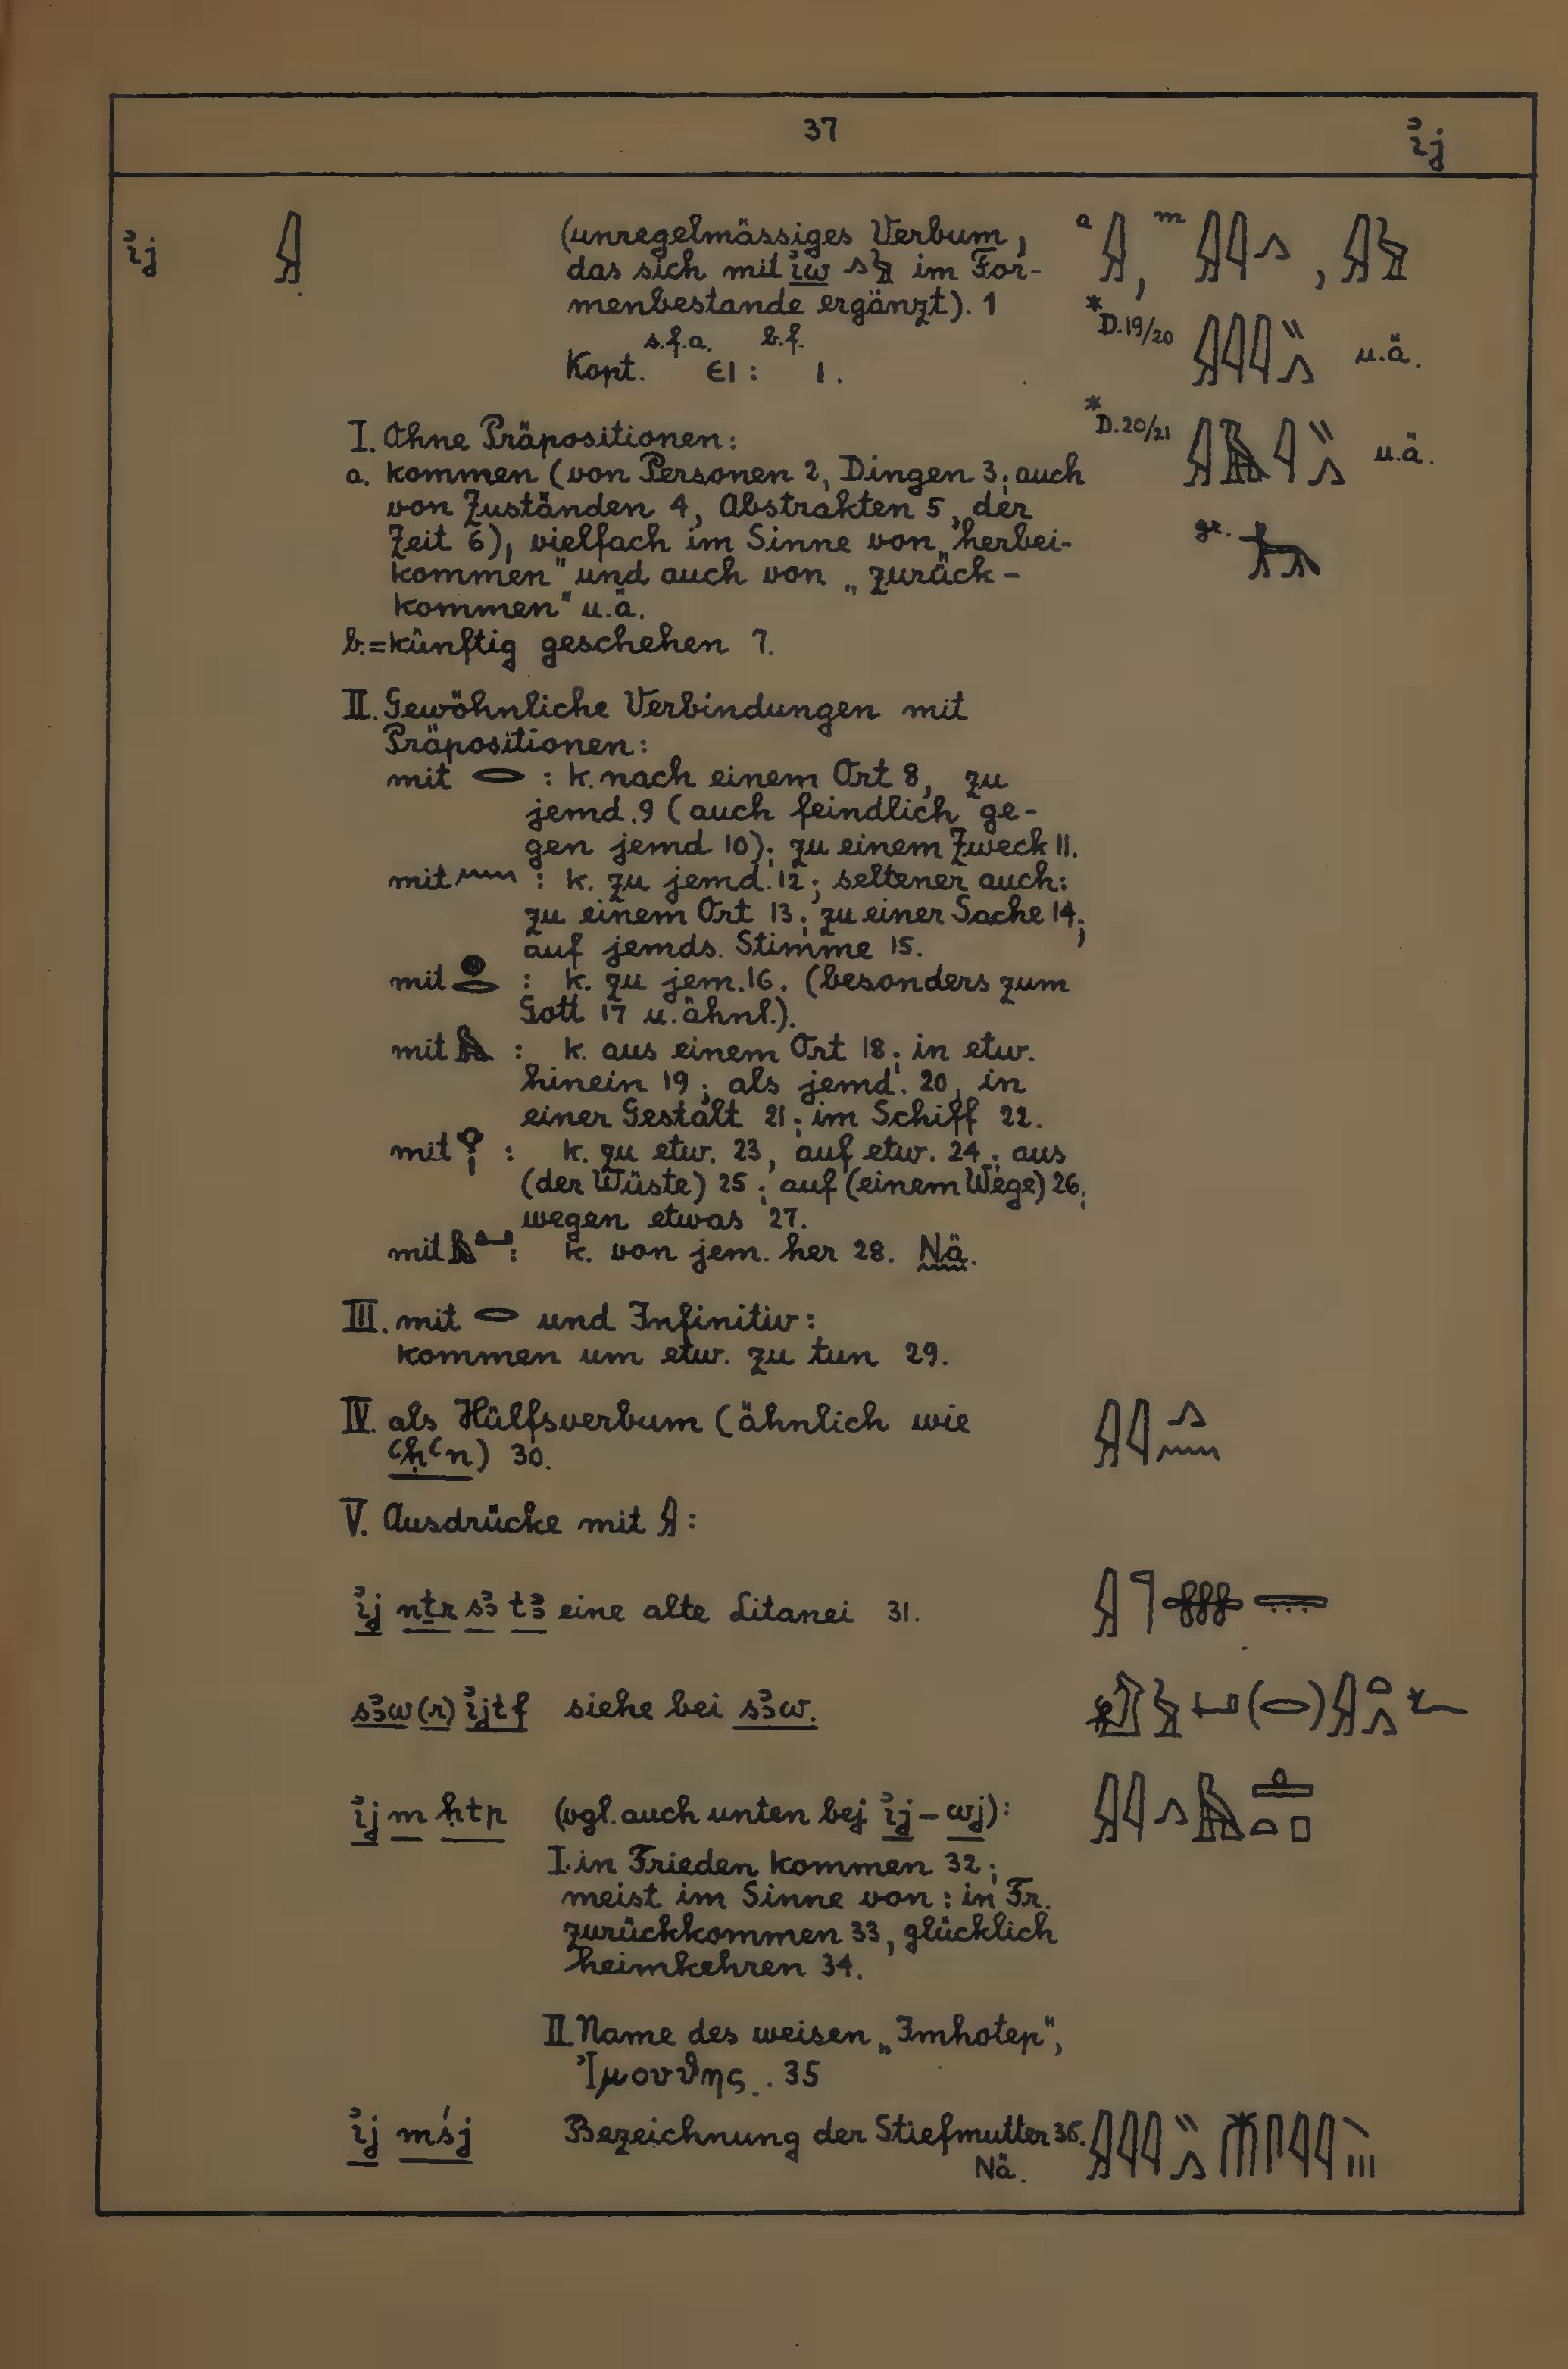 37
ꞽj
ꞽj 𓇍
(unregelmässiges Verbum,
das sich mit ꞽw 𓂻𓅱 im For-
menbestande ergänzt). 1
s.f.a. b.f.
Kopt. ⲉⲓ : ⲓ.
a 𓇍, m 𓇍𓇋𓂻, 𓇍𓅱
* D.19/20 𓇍𓇋𓇋𓏭𓂻 u.ä.
* D.20/21 𓇍𓅓𓇋𓏭𓂻 u.ä.
gr.
I. Ohne Präpositionen:
a. kommen (von Personen 2, Dingen 3; auch
von Zuständen 4, Abstrakten 5, der
Zeit 6), vielfach im Sinne von „herbei-
kommen" und auch von „zurück-
kommen" u.ä.
b.=künftig geschehen 7.
II. Gewöhnliche Verbindungen mit
Präpositionen:
mit 𓂋 : k. nach einem Ort 8, zu
jemd. 9 (auch feindlich ge-
gen jemd 10); zu einem Zweck 11.
mit 𓈖 : k. zu jemd. 12; seltener auch:
zu einem Ort 13; zu einer Sache 14;
auf jemds. Stimme 15.
mit 𓐍𓂋 : k. zu jem. 16. (besonders zum
Gott 17 u. ähnl.).
mit 𓅓 : k. aus einem Ort 18; in etw.
hinein 19; als jemd. 20, in
einer Gestalt 21; im Schiff 22.
mit 𓁷𓏤 : k. zu etw. 23, auf etw. 24; aus
(der Wüste) 25; auf (einem Wege) 26;
wegen etwas 27.
mit 𓅓𓂝 : k. von jem. her 28. Nä.
III. mit 𓂋 und Infinitiv:
kommen um etw. zu tun 29.
IV. als Hülfsverbum (ähnlich wie
ꜥḥꜥn) 30. 𓇍𓇋𓂻𓈖
V. Ausdrücke mit 𓇍:
ꞽj nṯr sꜣ tꜣ eine alte Litanei 31. 𓇍𓊹𓎃𓇾
sꜣw (r) ꞽjtf siehe bei sꜣw.
ꞽj m ḥtp (vgl. auch unten bej ꞽj - wj): 𓇍𓇋𓂻𓅓𓊵𓏏𓊪
I. in Frieden kommen 32;
meist im Sinne von: in Fr.
zurückkommen 33, glücklich
heimkehren 34.
II. Name des weisen „Imhotep",
Ἰμουϑης. 35
ꞽj mśj Bezeichnung der Stiefmutter 36. 𓇍𓇋𓇋𓏭𓂻𓄟𓋴𓇋𓇋𓏯𓏥
Nä.